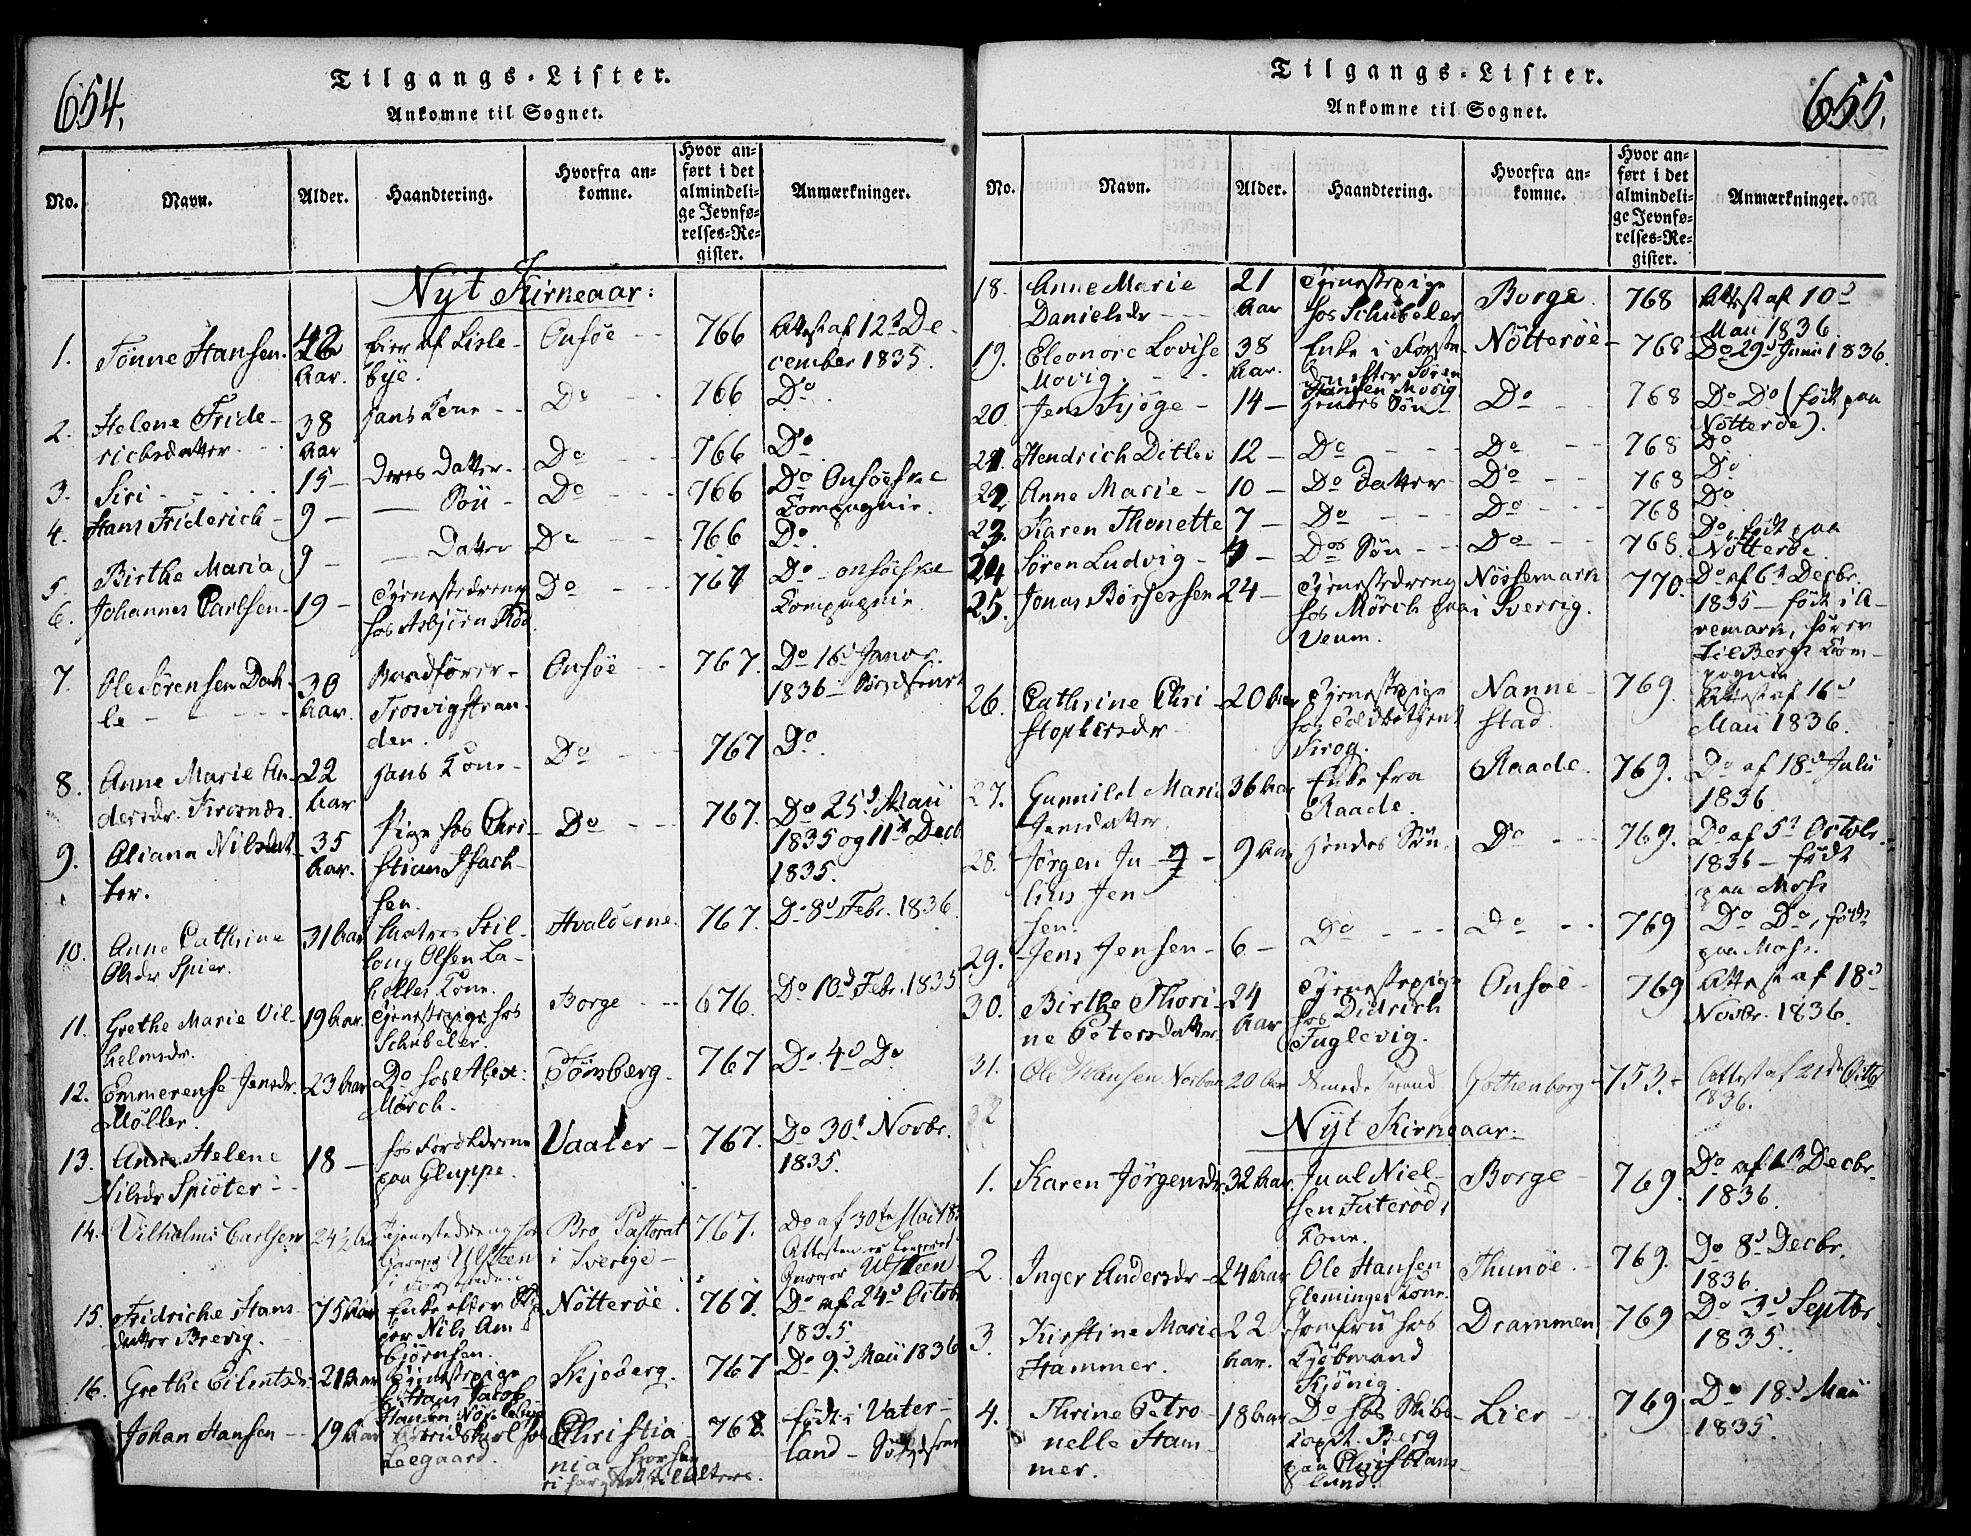 654.
Tilgangs-Lister.
Ankomne til Sognet.
No. Navn. Alder. Haandtering. Hvorfra ankomne. Hvor anført i det almindelige Jevnførelses-Register. Anmærkninger.
Nyt Kirkeaar:
1. Tönne Hansen. 42 Aar. Eier af Lislebye. Onsöe 766 Attest af 12te December 1835.
2. Helene Friderichsdatter 38 Aar hans Kone Do 766 Do
3. Siri 15 Deres Datter Do 766 Do
4. Hans Friderich 9 — Sön Do 766 Do Onsöeske Compagnie.
5. Birthe Maria 9 — Datter Do 766 Do
6. Johannes Carlsen 19 Tjenestedreng hos Asbjörn Do 767 Do Onsöeske Compagnie
7. Ole Sörensen Dahle 30 Aar. Trosvigstranden. Onsöe 767. Do 16d Januar 1836
8. Anne Marie Andersdr. 22 Aar hans Kone Do 767 Do.
9. Oliana Nilsdatter. 35 Aar. Pige hos Christian Isachsen. Do 767. Do 25d Maii 1835 og 11te Decb 1835.
10. Anne Cathrine Olsdr Spier. 31 Aar Matros Olsen Kone. Hvalöerne 767. Do 8d Febr. 1836.
11. Grethe Marie Vilhelmsdr. 19 Aar. Tjenestepige hos Schübeler. Borge 676. Do 10d Febr. 1835
12. Emmerense Jensdr. Möller. 23 Aar Do hos Alex: Mörch. Tönsberg. 767 Do 4d Do
13. Anne Helene Nilsdr Spiöter 18 — hos Forældrene paa Gluppe. Vaaler 767. Do 30d Novbr. 1835.
14. Vilhelmi Carlsen 24½ Aar Tjenestedreng hos Garver Ulsteen i Forstaden Bro Pastorat i Sverige 767. Do af 30te Mai 183 Attesten er leveret Garver Ulsteen
15. Fridriche Hansdatter Brevig. 75 Aar Enke efter Nils Ambjörnsen. Nötteröe. 767. Do af 24d Octob 1835.
16. Grethe Eilertsdr. 21 Aar Tjenestepige hos Hans Jacob Hansen Skjeberg. 767 Do 9d Maii 1836
Johan Hansen 19 Aar hos Leegaard. Christiania 768 födt i Vaterland
655.
Tilgangs-Lister.
Ankomne til Sognet.
No. Navn. Alder. Haandtering. Hvorfra ankomne. Hvor anført i det almindelige Jevnførelses-Register. Anmærkninger.
18. Anne Marie Danielsdr 21 Aar Tjenestepige hos Schübeler Borge. 768 Attest af 10d Maii 1836.
19. Eleonore Lovise Movig. 38 Aar. Enke i Forstaden efter Sören Hansen Movig Nötteröe 768 Do 29d Junii 1836.
20. Jens 14 — hendes Sön Do 768 Do Do (födt paa Nötteröe).
21. Hendrich Ditlev 12 — Do Do 768 Do
22. Anne Marie 10 — Do Datter Do 768 Do
23. Karen Thonette 7 — Do Do 768 Do
24 Sören Ludvig 4 — Do Sön Do 768. Do, födt paa Nötteröe.
25. Jonas Börjersen 24 — Tjenestedreng hos Mörch paa Veum. Nössemark i Sverrig. 770. Do af 6te Decbr. 1835 — födt i Aremark, hörer til Bergs Compagnie
26. Cathrine Christophersdr 20 Aar Tjenestepige hos Toldbetjent Krog. Nannestad. 769. Attest af 16d Maii 1836.
27. Gunnild Maria Jensdatter 36 Aar Enke fra Raade. Raade. 769. Do af 18d Julii 1836
28. Jörgen Julius Jensen. 9 Aar hendes Sön. Do 769. Do af 5te Octobr. 1836 — födt paa Moss
29. Jens Jensen 6 — Do Do 769 Do Do, födt paa Moss.
30. Birthe Thorine Petersdatter 24 Aar Tjenestepige hos Didrich Fuglevig. Onsöe 769 Attest af 18d Novbr. 1836.
31. Ole Hansen 20 Aar Gothenborg 753. Attest af 21de Octb 1836.
Nyt Kirkeaar:
1. Karen Jörgensdr. 32 Aar. Juul Nielsen Kone. Borge 769. Do af 1te Decbr. 1836.
2. Inger Andersdr 24 Aar Ole Hansen Glemminges Kone. Thunöe 769. Do 8d Decbr. 1836.
3. Kirstine Marie Hammer. 22 Aar. Jomfru hos Kjöbmand Skjönig. Drammen 769 Do 3d Septbr. 1835.
4. Thrine Petronelle Hammer. 18 Aar Do hos Skibscapt. Berg paa Christianslund. Lier 769 Do 18d Maii 1835.